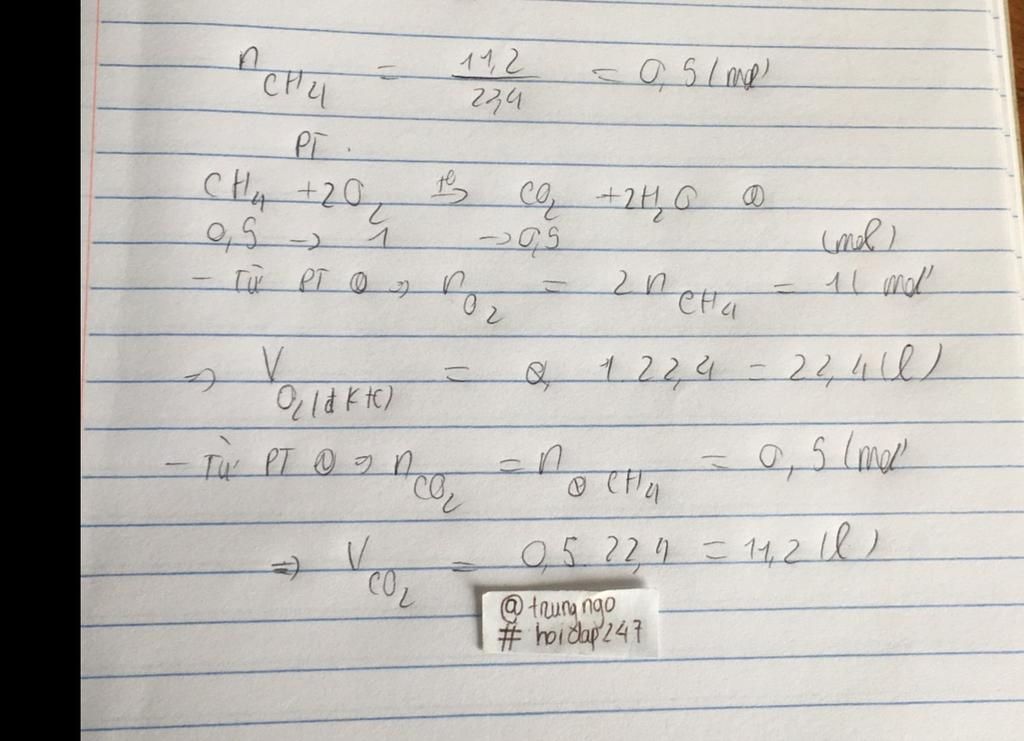 n CH4 = 11,2 / 22,4 = 0,5 (mol)
PT.
CH4 + 2O2 t°→ CO2 + 2H2O ①
0,5 → 1 → 0,5 (mol)
- Từ PT ① => n O2 = 2 n CH4 = 1( mol
=> V O2 (đktc) = 1.22,4 = 22,4 (l)
- Từ PT ① => n CO2 = n CH4 = 0,5 (mol
=> V CO2 = 0,5.22,4 = 11,2 (l)
@trungngo
# hoidap247